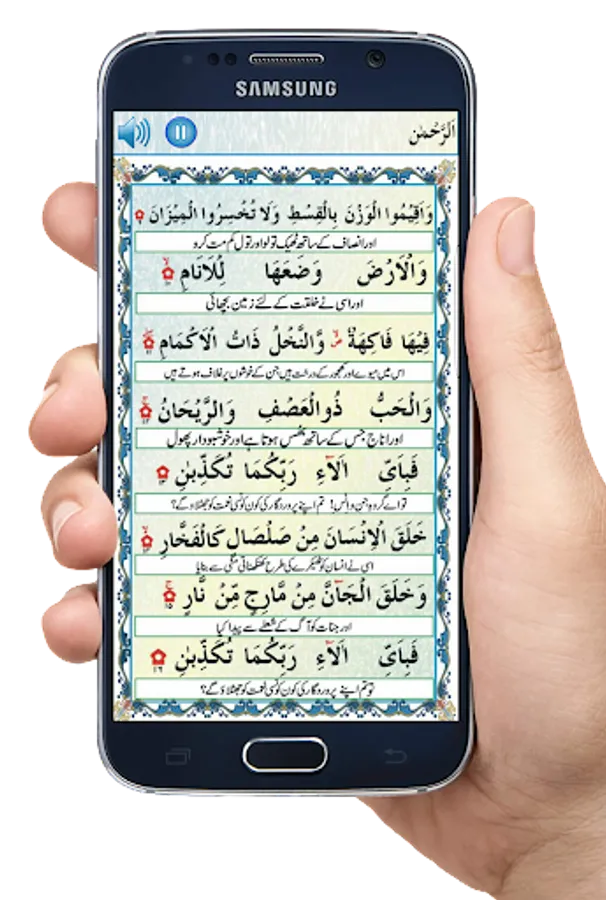 SAMSUNG
اَلرَّحْمٰن
وَاَقِيْمُوا الْوَزْنَ بِالْقِسْطِ وَلَا تُخْسِرُوا الْمِيْزَانَ ۹
اور انصاف کے ساتھ ٹھیک تولو اور تول کم مت کرو
وَالْاَرْضَ وَضَعَهَا لِلْاَنَامِ ۱۰
اور اسی نے خلقت کے لئے زمین بچھائی
فِيْهَا فَاكِهَةٌ وَّالنَّخْلُ ذَاتُ الْاَكْمَامِ ۱۱
اس میں میوے اور کھجور کے درخت ہیں جن کے خوشوں پر غلاف ہوتے ہیں
وَالْحَبُّ ذُوالْعَصْفِ وَالرَّيْحَانُ ۱۲
اور اناج جس کے ساتھ بھس ہوتا ہے اور خوشبودار پھول
فَبِاَيِّ اٰلَآءِ رَبِّكُمَا تُكَذِّبٰنِ ۱۳
تو اے گروہ جن وانس! تم اپنے پروردگار کی کون کونسی نعمت کو جھٹلاؤ گے؟
خَلَقَ الْاِنْسَانَ مِنْ صَلْصَالٍ كَالْفَخَّارِ ۱۴
اسی نے انسان کو ٹھیکرے کی طرح کھنکھناتی مٹی سے بنایا
وَخَلَقَ الْجَآنَّ مِنْ مَّارِجٍ مِّنْ نَّارٍ ۱۵
اور جنات کو آگ کے شعلے سے پیدا کیا
فَبِاَيِّ اٰلَآءِ رَبِّكُمَا تُكَذِّبٰنِ ۱۶
تو تم اپنے پروردگار کی کون کونسی نعمت کو جھٹلاؤ گے؟